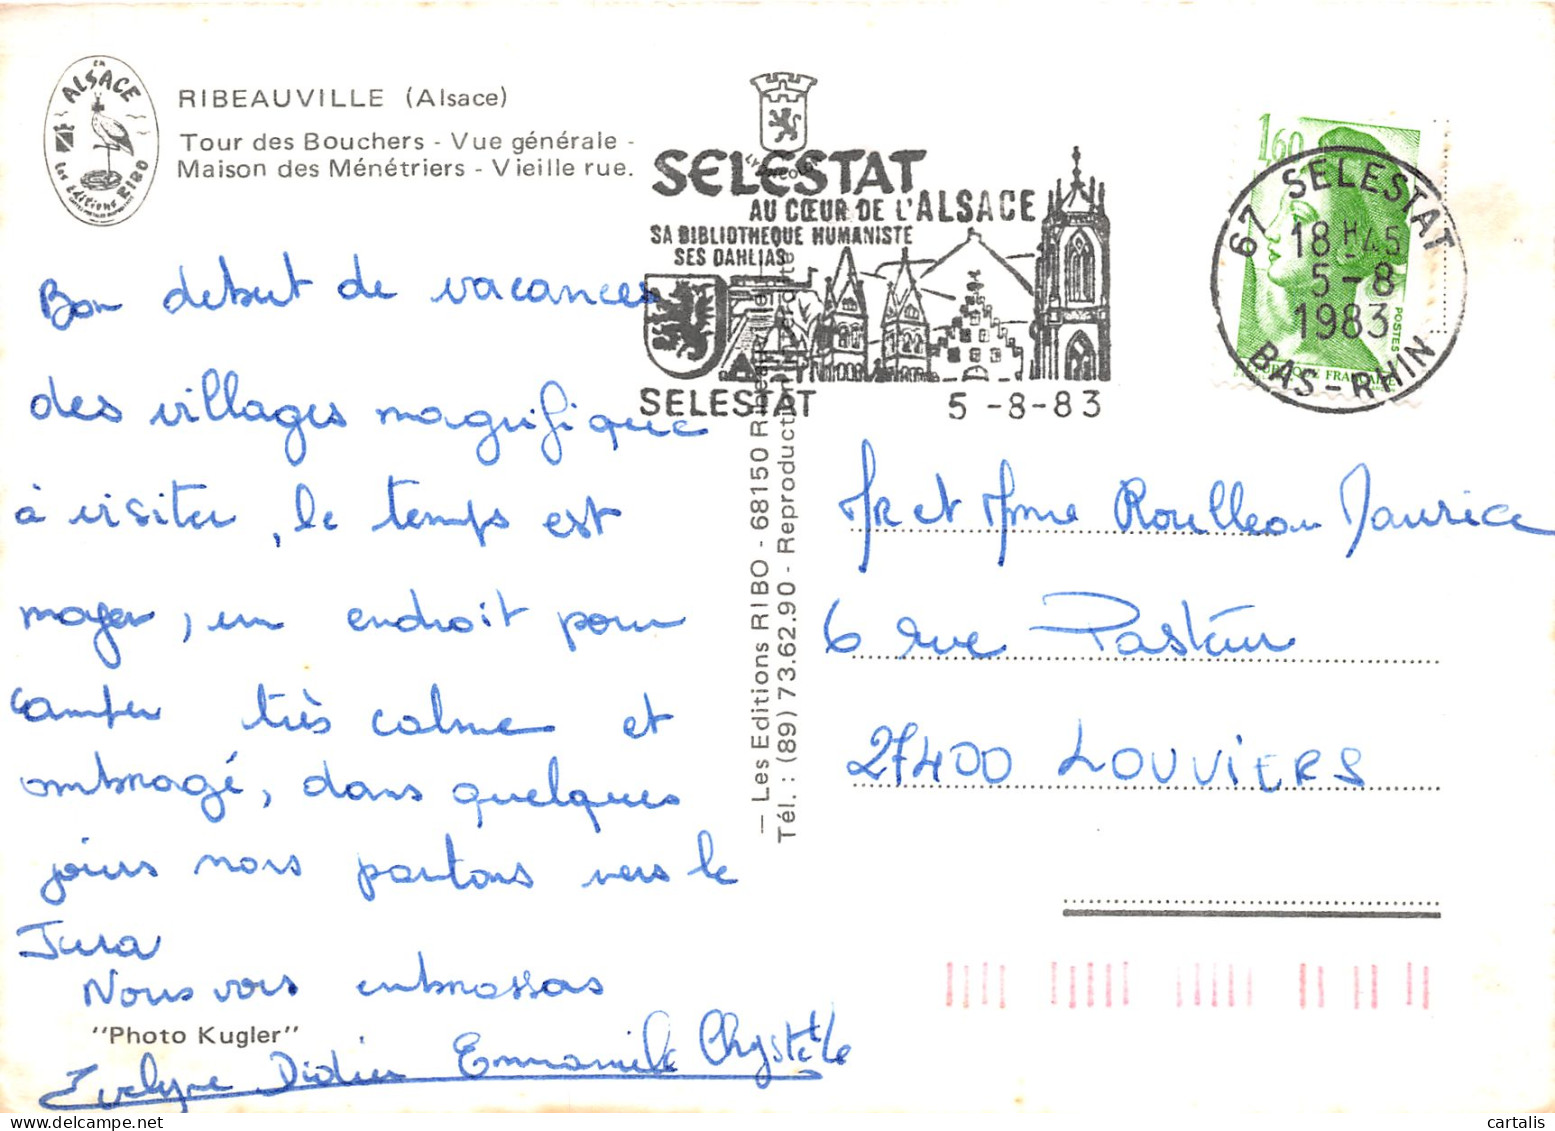 EN
ALSACE
Les éditions RIBO
RIBEAUVILLE (Alsace)
Tour des Bouchers - Vue générale -
Maison des Ménétriers - Vieille rue.
SELESTAT
AU CŒUR DE L'ALSACE
SA BIBLIOTHEQUE HUMANISTE
SES DAHLIAS
SELESTAT 5-8-83
1,60
POSTES
67 SELESTAT
18H45
5-8
1983
BAS-RHIN
Bon debut de vacances
des villages magnifique
à visiter, le temps est
moyen, un endroit pour
camper très calme et
ombragé, dans quelques
jours nous partons vers le
Jura
Nous vous embrassons
"Photo Kugler"
Evelyne Didier Emmanuelle Chrystelle
— Les Editions RIBO - 68150 Ribeauville
Tél. : (89) 73.62.90 - Reproduction interdite
Mr et Mme Roulleau Maurice
6 rue Pasteur
27400 LOUVIERS
cartalis